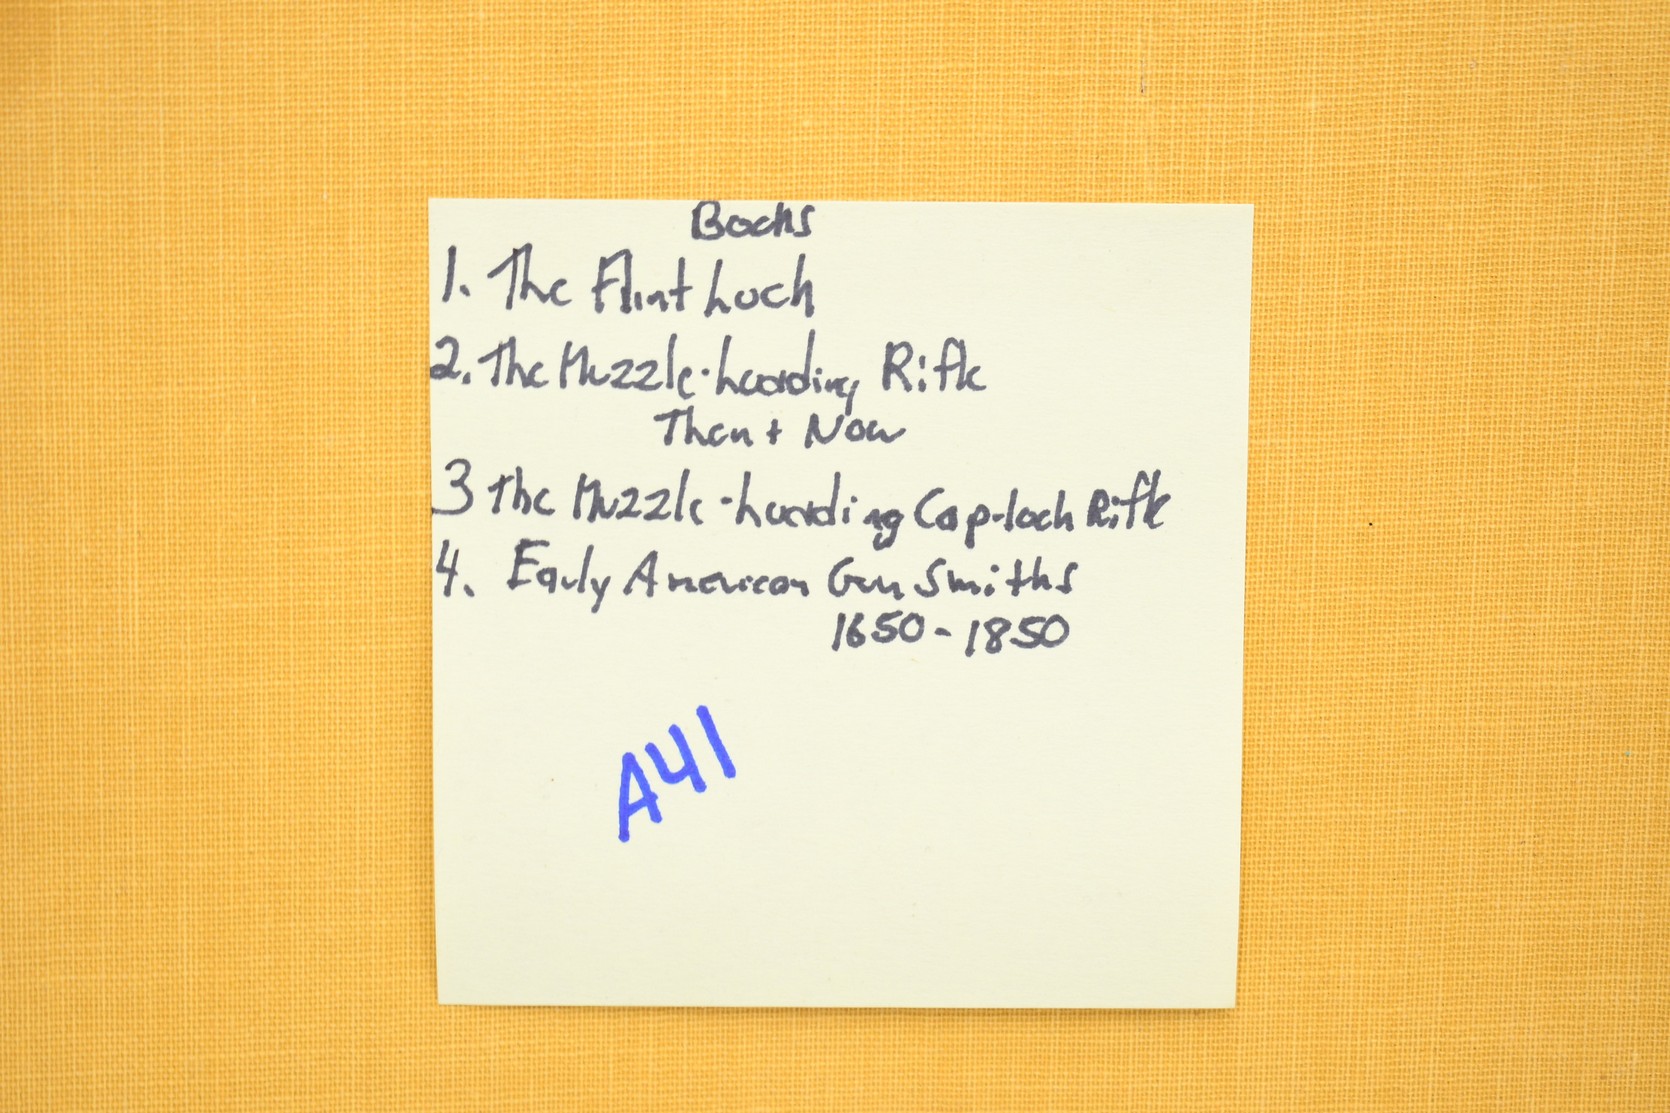 Books
1. The Flint Lock
2. The Muzzle-Loading Rifle
Then + Now
3 The Muzzle-Loading Cap-lock Rifle
4. Early American Gun Smiths
1650-1850
A41